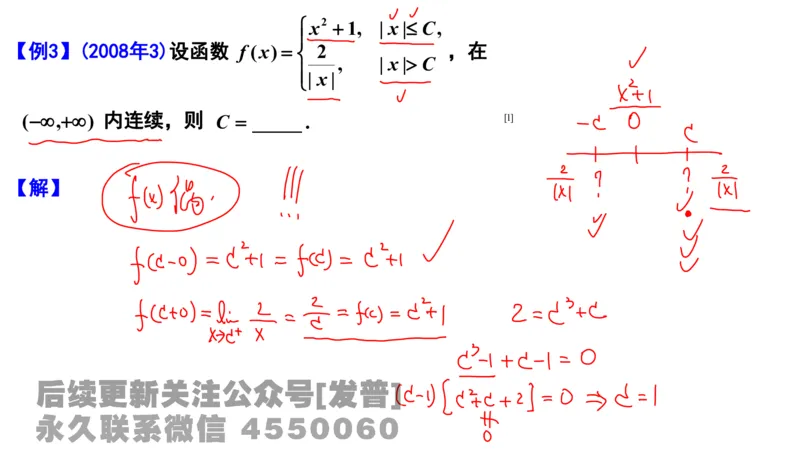 【例3】(2008年3)设函数 f(x)={x²+1, |x|≤C, 2/|x|, |x|>C , 在
(−∞,+∞) 内连续，则 C = _____ .
[1]
x²+1
-c 0 c
2/|x| ? ? 2/|x|
【解】
f(x) 偶. !!!
f(c-0) = c²+1 = f(c) = c²+1
f(c+0) = lim x→c⁺ 2/x = 2/c = f(c) = c²+1 2=c³+c
c³-1+c-1=0
(c-1)[c²+c+2]=0 ⇒ c=1
0
后续更新关注公众号[发普]
永久联系微信 4550060